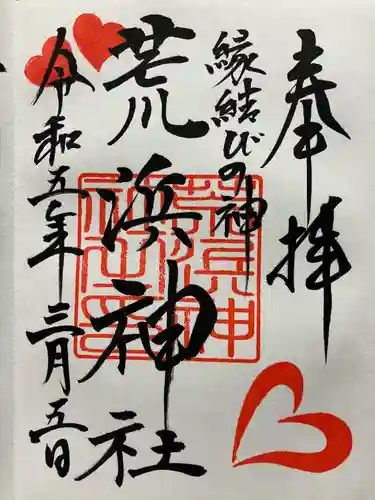 奉拝
縁結びの神
荒浜神社
令和五年三月五日
荒浜神社之印